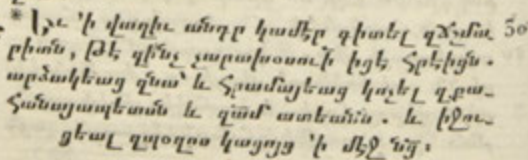 * Եւ ՚ի վաղիւ անդր կամէր գիտել զՃշմա 30
րիտն, թէ զինչ չարախօսուի իցէ Հրէիցն.
արձակեաց զնա՝ և Հրամայեաց կոչել զքա-
Հանայապետսն և զամ ատեանն. և իջու-
ցեալ զպօղոս կացոյց ՚ի մէջ նց։